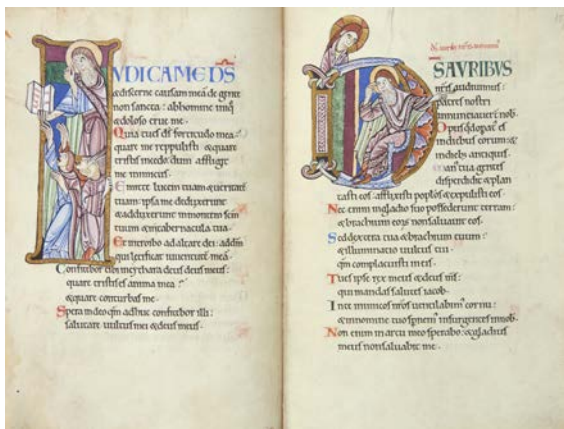 IVDICA ME DS
& discerne causam meā de gente
non sancta: ab homine iniq
& doloso erue me.
Quia tu es ds fortitudo mea:
quare me reppulisti & quare
tristis incedo dum affligit
me inimicus.
Emitte lucem tuam & ueritatē
tuam: ipsa me deduxerunt
& adduxerunt in montem scm
tuum & in tabernacula tua.
Et introibo ad altare dei: ad dm
qui letificat iuuentutē meā.
Confitebor tibi in cythara deus deus meus:
quare tristis es anima mea?
& quare conturbas me.
Spera in deo qm adhuc confitebor illi:
salutare uultus mei & deus meus.
DS AVRIBVS
nris audiuimus:
patres nostri
annunciauert nob.
Opus qd opat es
in diebus eorum: &
in dieb; antiquis.
Manus tua gentes
disperdidit & plan
tasti eos: afflixisti poplos & expulisti eos.
Nec enim in gladio suo possederunt terram:
& brachium eorum non saluauit eos.
Sed dextera tua & brachium tuum:
& illuminatio uultus tui
qm complacuisti in eis.
Tu es ipse rex meus & deus ms:
qui mandas salutes iacob.
In te inimicos nros uentilabim cornu:
& in nomine tuo spernem insurgentes in nob.
Non enim in arcu meo sperabo: & gladius
meus non saluabit me.